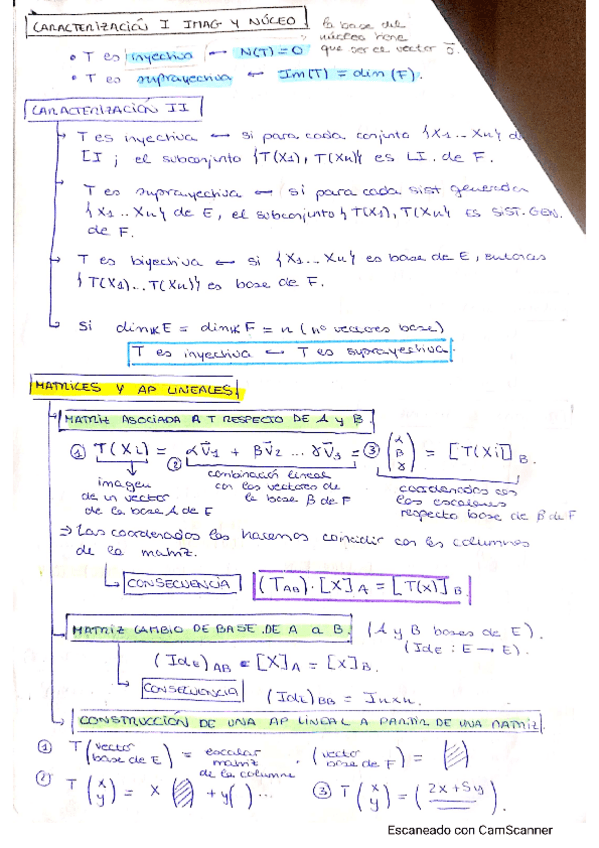 CARACTERIZACIÓN I IMAG Y NÚCEO
la base del
núcleo tiene
que ser el vector 0⃗.
• T es inyectiva ⟷ N(T) = 0
• T es suprayectiva ⟷ Im(T) = dim (F).
CARACTERIZACIÓN II
T es inyectiva ⟷ si para cada conjunto {X1 .. Xn} d
LI ; el subconjunto {T(X1), T(Xn)} es LI. de F.
T es suprayectiva ⟷ si para cada sist generador
{X1 .. Xn} de E, el subconjunto {T(X1), T(Xn)} es SIST. GEN.
de F.
T es biyectiva ⟷ si {X1 ... Xn} es base de E, entonces
{T(X1) ... T(Xn)} es base de F.
Si dimK E = dimK F = n (nº vectores base)
T es inyectiva ⟷ T es suprayectiva.
MATRICES Y AP LINEALES
MATRIZ ASOCIADA A T RESPECTO DE A y B.
① T(Xi) = ② αv⃗1 + βv⃗2 ... γv⃗3 = ③ (α β γ) = [T(Xi)]B.
imagen
de un vector
de la base A de E
combinación lineal
con los vectores de
la base B de F
coordenadas con
los escalares
respecto base de B de F
⇒ Las coordenadas las hacemos coincidir con las columnas
de la matriz.
CONSECUENCIA (TAB) · [X]A = [T(x)]B.
MATRIZ CAMBIO DE BASE DE A a B. (A y B bases de E).
(IdE : E → E).
(IdE)AB = [X]A = [X]B.
CONSECUENCIA (IdE)BB = Inxn.
CONSTRUCCIÓN DE UNA AP LINEAL A PARTIR DE UNA MATRIZ.
① T(vector base de E) = escalar matriz de la columna · (vector base de F) = ( )
② T(x y) = x ( ) + y( ) ... ③ T(x y) = (2x + 5y).
Escaneado con CamScanner